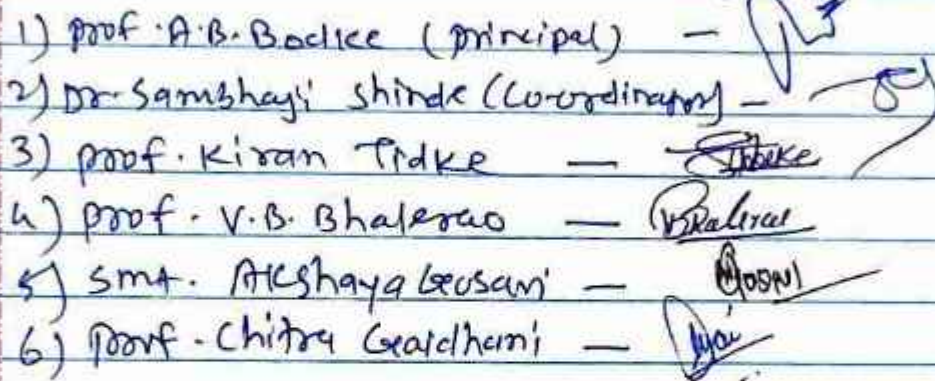 1) prof. A.B. Bodkee (principal) -
2) Dr. Sambhaji shinde (Co-ordinator) -
3) prof. Kiran Tidke -
4) prof. V.B. Bhalerao -
5) smt. Akshaya Gosavi - Gosavi
6) prof. Chitra Gaidhani -